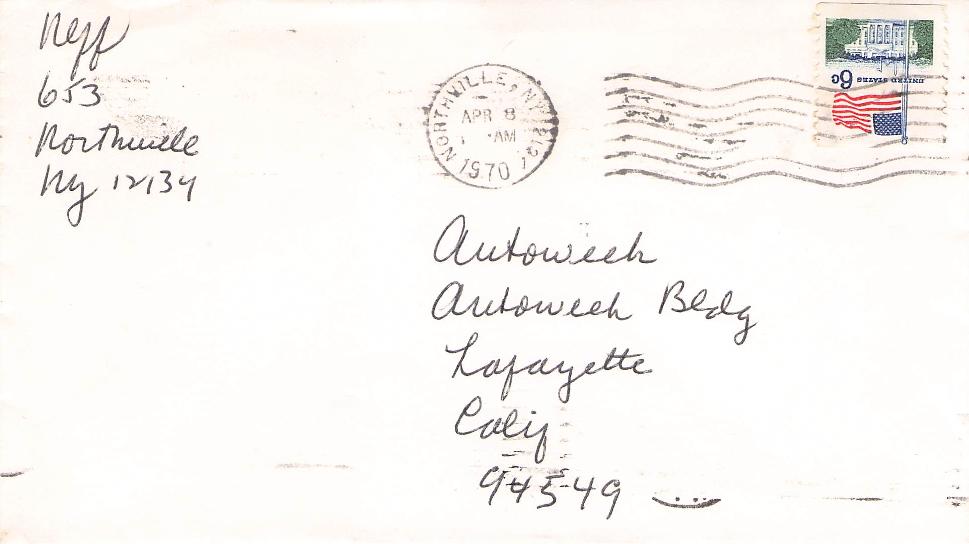 Neff
653
Northville
Ny 12134
NORTHVILLE, N.Y. 1213
APR 8
AM
1970
UNITED STATES 6c
Autoweek
Autoweek Bldg
Lafayette
Calif
94549